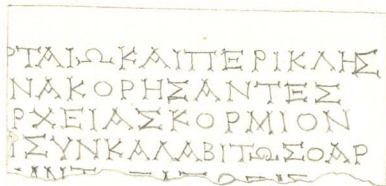 ΡΤΑΙΩΚΑΙΠΕΡΙΚΛΗΣ
ΝΑΚΟΡΗΣΑΝΤΕΣ
ΡΧΕΙΑΣΚΟΡΜΙΟΝ
ΙΣΥΝΚΑΛΑΒΙΤΩΣΟΑΡ